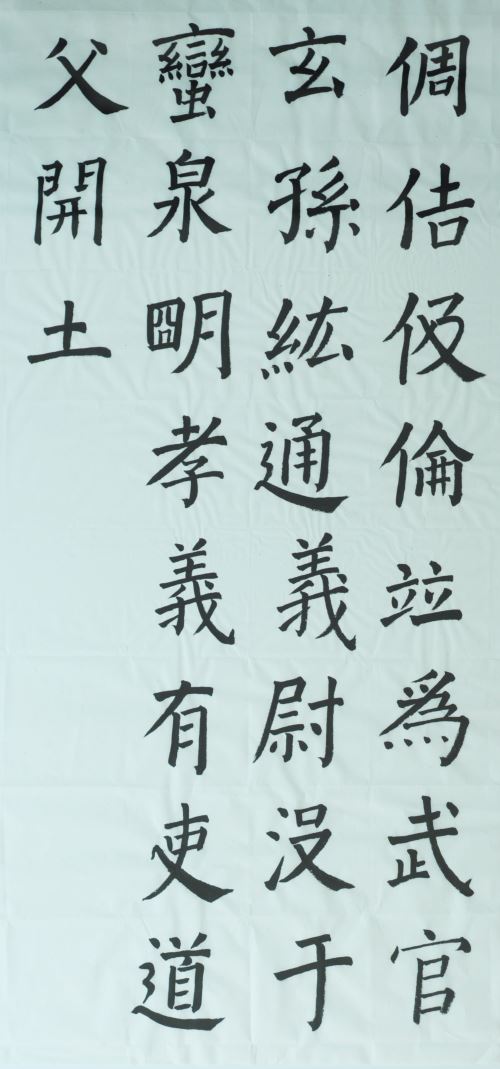 倜佶伋倫竝爲武官
玄孫紘通義尉没于
蠻泉明孝義有吏道
父開土